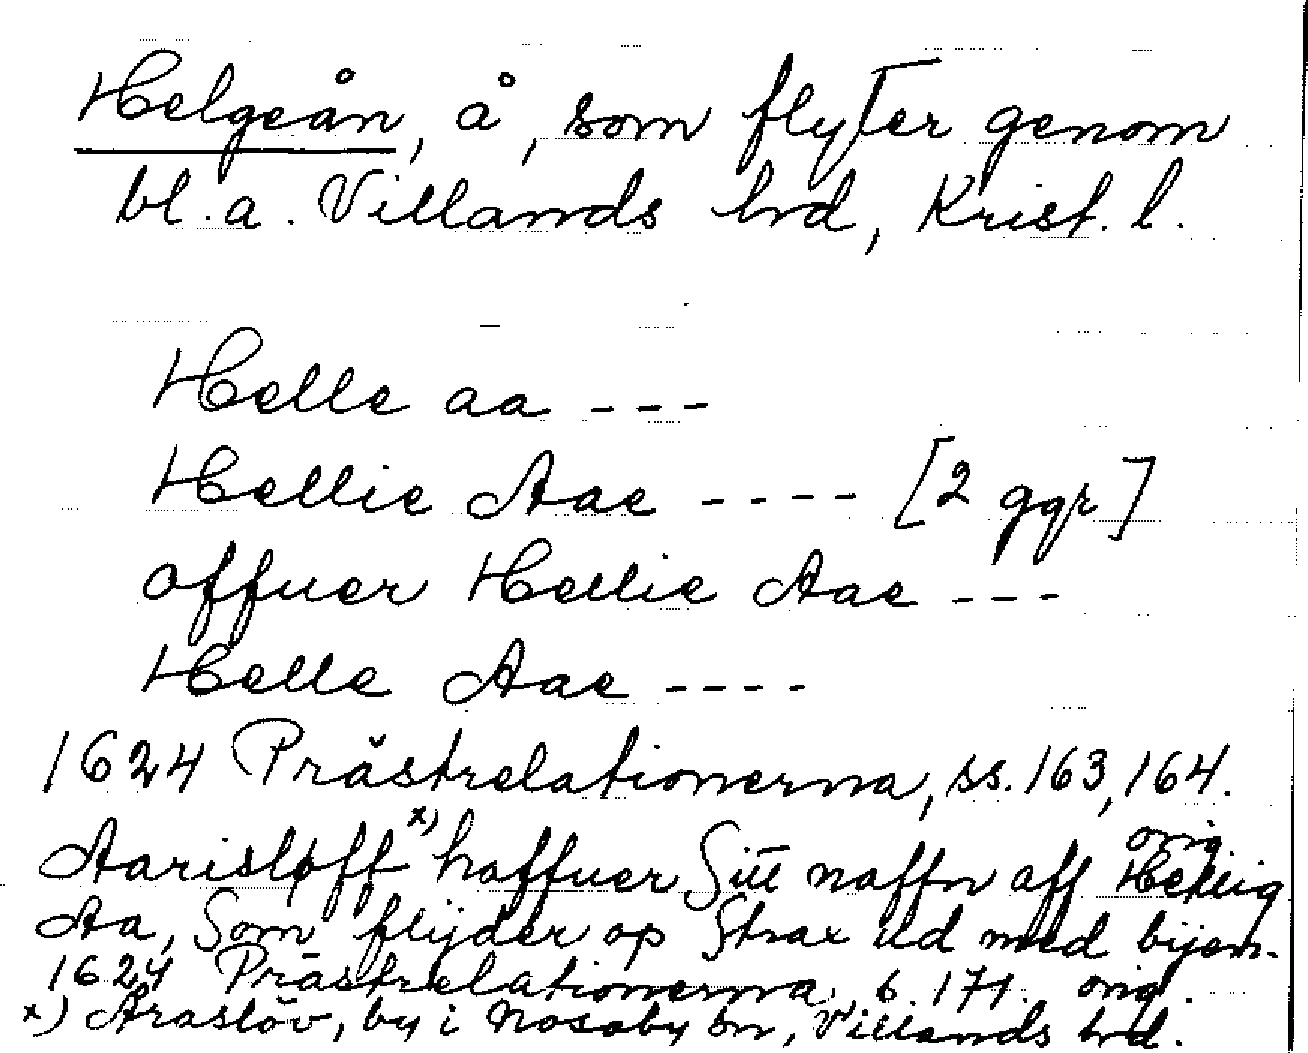 Helgeån, å, som flyter genom
bl. a. Villands hrd, Krist. l.
Helle aa - - -
Hellie Aae - - - - [2 ggr]
offuer Hellie Aae - - -
Helle Aae - - - -
1624 Prästrelationerna, ss. 163, 164.
orig.
Aarisløff x) haffuer Sitt naffn aff Hellig
Aa, Som flyder op Strax ud med byen.
1624 Prästrelationerna, s. 171. orig.
x) Araslöv, by i Nosaby sn, Villands hrd.